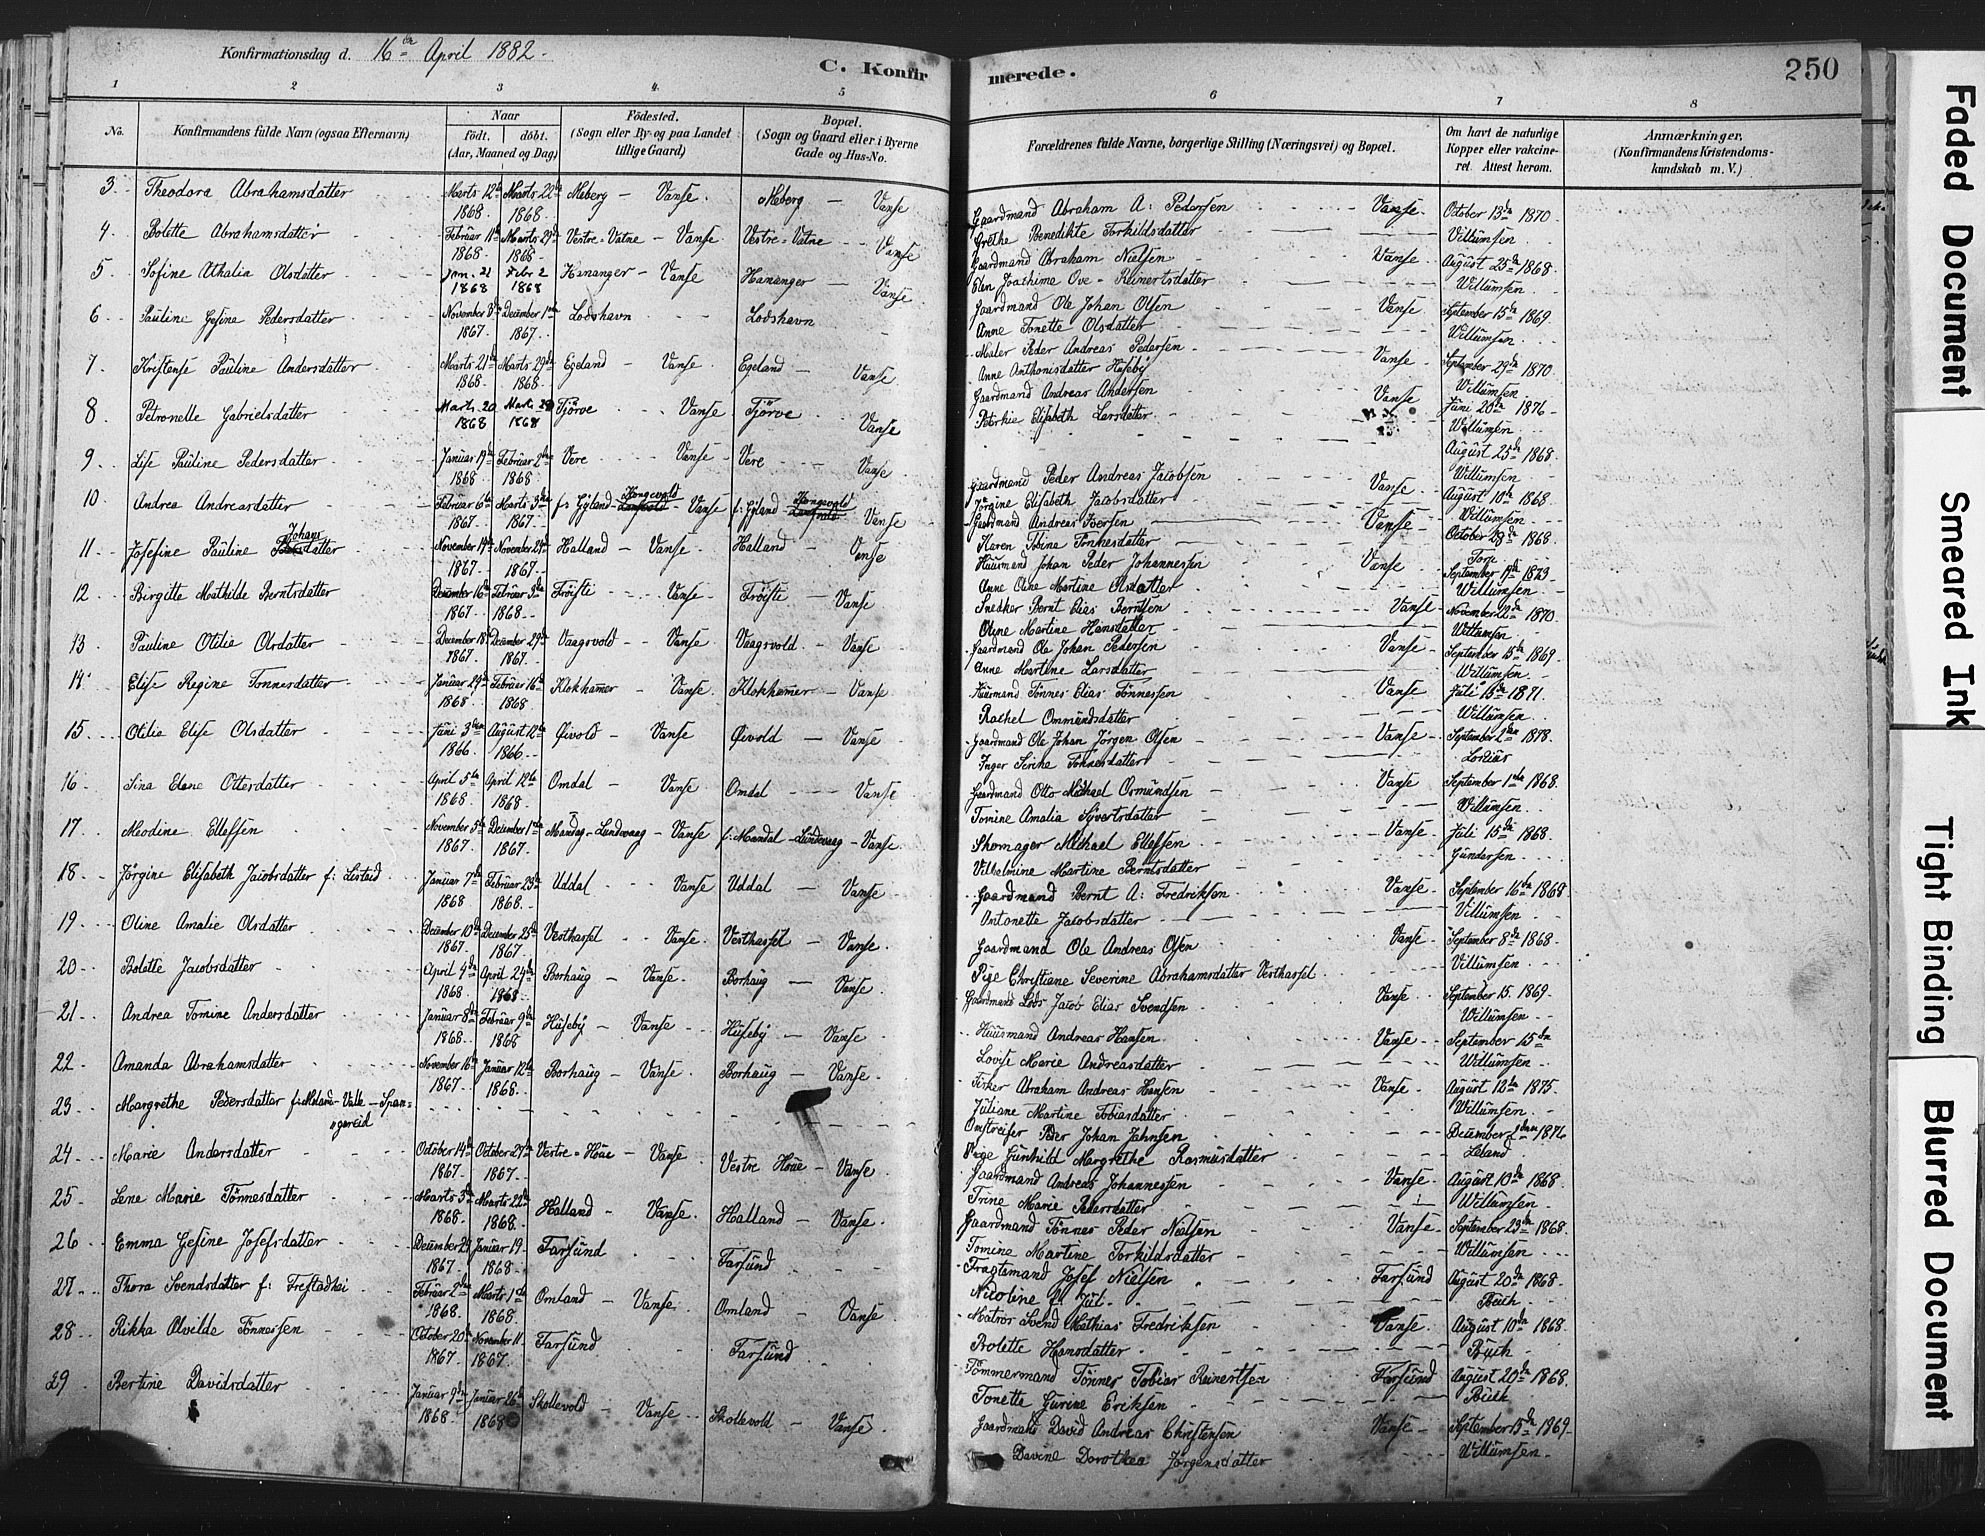 Konfirmationsdag d. 16de April 1882.
C. Konfirmerede.
250
1 2 3 4. 5 6 7 8
No. Konfirmandens fulde Navn (ogsaa Efternavn) Naar født. døbt. (Aar, Maaned og Dag) Fødested. (Sogn eller By- og paa Landet tillige Gaard) Bopæl. (Sogn og Gaard eller i Byerne Gade og Hus-No. Forældrenes fulde Navne, borgerlige Stilling (Næringsvei) og Bopæl. Om havt de naturlige Kopper eller vakcineret. Attest herom. Anmærkninger. (Konfirmandens Kristendomskundskab m. V.)
3. Theodora Abrahamsdatter Marts 12te 1868. Marts 22de 1868. Meberg - Vanse. Meberg - Vanse
Gaardmand Abraham A: Pedersen Vanse. October 13de 1870.
Grethe Benedikte Torkildsdatter Villumsen
4 Bolette Abrahamsdatter Februar 11te 1868. Marts 29de 1868. Vestre-Vatne - Vanse Vestre-Vatne - Vanse
Gaardmand Abraham Nielsen Vanse. August 25de 1868.
Elen Joachime Ove-Reinertsdatter Willumsen
5 Sofine Athalia Olsdatter Jan. 21 1868 Febr 2 1868 Hananger - Vanse Hananger - Vanse
Gaardmand Ole Johan Olsen Vanse September 15de 1869.
Anne Tonette Olsdatter Willumsen
6 Pauline Gesine Pedersdatter November 8de 1867. December 1ste 1867. Lodshavn Lodshavn
Maler Peder Andreas Pedersen Vanse September 29de 1870
Anne Anthonisdatter Huseby Willumsen
7 Kristense Pauline Andersdatter Marts 21de 1868. Marts 29de 1868. Egeland - Vanse Egeland - Vanse
Gaardmand Andreas Andersen Vanse Juni 20de 1876
Elisabeth Larsdatter Willumsen
8 Petronelle Gabrielsdatter Marts 20 1868 Marts 1868 Tjörve Vanse Tjörve Vanse
August 25de 1868
Willumsen
9 Lise Pauline Pedersdatter Januar 19de 1868. Februar 2de 1868 Vere Vanse Vere Vanse
Gaardmand Peder Andreas Jacobsen Vanse August 10de 1868
Jörgine Elisabeth Jacobsdatter Willumsen
10 Andrea Andreasdatter Februar 6te 1867. Marts 3die 1867. f: Gyland Kongevold - Vanse f: Gyland Kongevold Vanse
Gaardmand Andreas Iversen Vanse October 28de 1868
Karen Tobine Tönnesdatter Torp
11 Josefine Pauline Johansdatter November 14de 1867. November 24de 1867. Halland - Vanse Halland - Vanse
Huusmand Johan Peder Johannessen Vanse September 19de 1873
Anne Oline Martine Olsdatter Willumsen
12 Birgitte Mathilde Berntsdatter December 16de 1867 Februar 3die 1868. Fröiste - Vanse Fröiste - Vanse
Snedker Bernt Elias Berntsen Vanse November 12de 1870
Oline Martine Hansdatter Willumsen
13 Pauline Otilie Olsdatter December 18de 1867. December 29de 1867. Vaagsvold - Vanse Vaagsvold - Vanse
Gaardmand Ole Johan Pedersen Vanse September 15de 1869.
Anne Martine Larsdatter Willumsen
14 Elise Regine Tonnesdatter Januar 29de 1868. Februar 16de 1868 Klokhamer - Vanse Klokhamer - Vanse
Huusmand Tönnes Elias Tönnessen Vanse Juli 15de 1871.
Rachel Ommundsdatter Willumsen
15 Otilie Elise Olsdatter Juni 3die 1866. August 12te 1866. Øivold - Vanse Øivold - Vanse
Gaardmand Ole Johan Jörgen Olsen Vanse September 2den 1878.
Inger Serine Tönnesdatter
16 Sina Elene Ottersdatter April 5te 1868 April 12te 1868. Omdal - Vanse Omdal - Vanse
Gaardmand Otto Michael Osmundsen Vanse September 1ste 1868.
Tomine Amalia Syvertsdatter Willumsen
17 Meodine Ellefsen November 5te 1867. December 1ste 1867. Mandag-Lundevaag - Vanse f: Mandal-Lundevaag - Vanse
Skomager Michael Ellefsen Vanse Juli 15de 1868.
Vilhelmine Martine Berntsdatter Gundersen
18 Jörgine Elisabeth Jacobsdatter f: Januar 7de 1868 Februar 23de 1868. Uddal Vanse Uddal - Vanse
Gaardmand Bernt A: Fredriksen Vanse September 16de 1868
Antonette Jacobsdatter Villumsen
19 Oline Amalie Olsdatter December 10de 1867. December 25de 1867 Vesthassel - Vanse. Vesthassel - Vanse.
Gaardmand Ole Andreas Olsen Vanse September 8de 1868.
Pige Christiane Severine Abrahamsdatter Vesthassel Villumsen
20 Bolette Jacobsdatter April 4de 1868. April 24de 1868. Borhaug - Vanse. Borhaug - Vanse.
Gaardmand Lods Jacob Elias Svendsen Vanse September 15. 1869.
Willumsen
21 Andrea Tomine Andersdatter Januar 8de 1868. Februar 9de 1868 Huseby - Vanse Huseby - Vanse
Huusmand Andreas Hansen Vanse September 15de
Lovise Marie Andreasdatter Willumsen
22 Amanda Abrahamsdatter November 16de 1867. Januar 12te 1868. Borhaug - Vanse. Borhaug - Vanse.
Fisker Abraham Andreas Hansen Vanse August 12te 1875
Juliane Martine Tobiasdatter Willumsen
23 Margrethe Pedersdatter f: Moland - Valle - Spangereid
Omstreifer Peder Johan Jahnsen December 2den 1876
Pige Gunhild Margrethe Rasmusdatter Leland
24 Marie Andersdatter October 14de 1867. October 27de 1867. Vestre-Houe - Vanse Vestre Houe - Vanse
Gaardmand Andreas Johannessen Vanse. August 10de 1868.
Trine Marie Pedersdatter Willumsen
25 Lene Marie Tönnesdatter Marts 5te 1868. Marts 22de 1868. Halland - Vanse. Halland - Vanse.
Gaardmand Tönnes Peder Nielsen Vanse September 23de 1868.
Tomine Martine Torkildsdatter Willumsen
26 Emma Gesine Josefsdatter December 29 1867. Januar 19. 1868. Farsund Farsund
Fragtemand Josef Nielsen Farsund August 20de 1868.
Nicoline f. Jul. Buch
27 Thora Svendsdatter f: Frestadhei Februar 2den 1868. Marts 1ste 1868 Omland - Vanse. Omland - Vanse.
Matros Svend Mathias Fredriksen Vanse August 10de 1868.
Bolette Hansdatter Buch
28 Rikka Olvilde Tönnessen October 20de 1867. November 11. 1867. Farsund Farsund
Tömmermand Tönnes Tobias Reinertsen Farsund August 20de 1868.
Tonette Gurine Eriksen Buch
29 Bertine Davidsdatter Januar 9de 1868. Januar 26de 1868 Skollevold - Vanse Skollevold - Vanse.
Gaardmand David Andreas Christensen Vanse September 15de 1869.
Davine Dorothea Jörgensdatter Willumsen
Faded Document
Smeared Ink
Tight Binding
Blurred Document